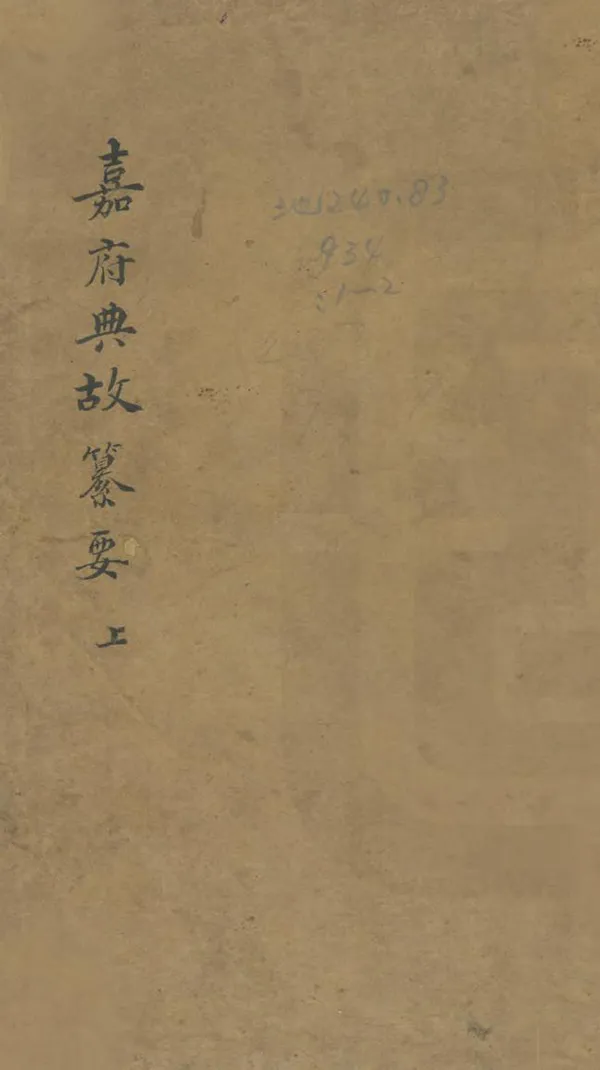 嘉府典故纂要 上
地1240.83
934
:1-2